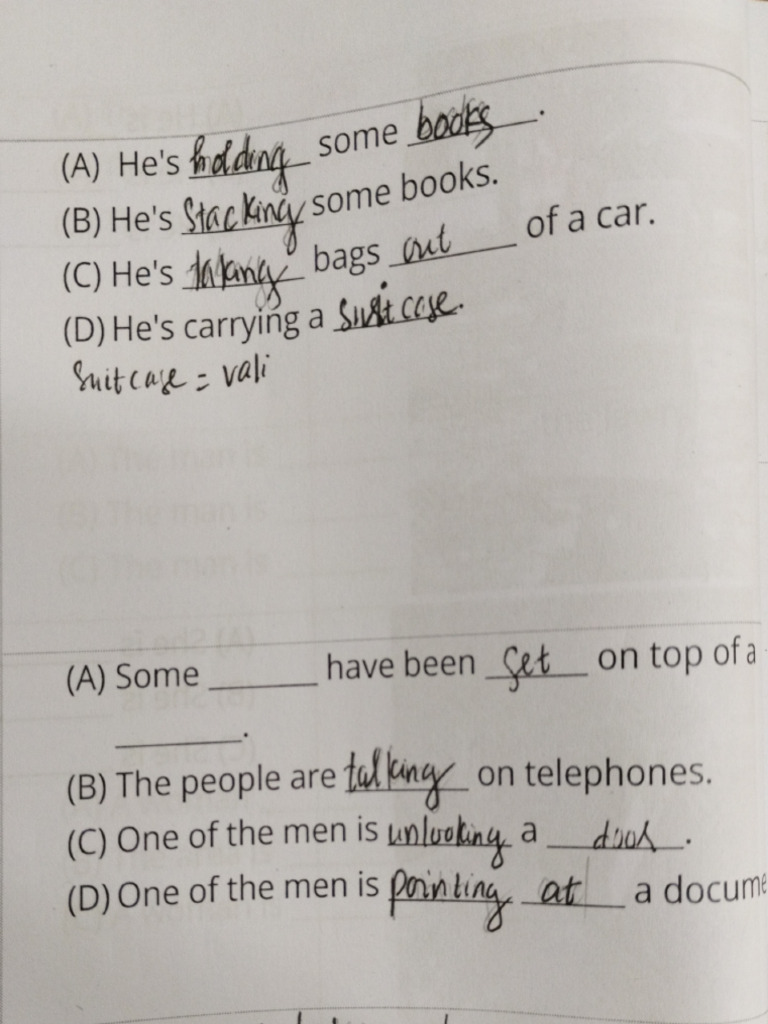 (A) He's holding some books.
(B) He's Stacking some books.
(C) He's taking bags out of a car.
(D) He's carrying a suitcase.
Suitcase = vali
(A) Some ______ have been set on top of a
______.
(B) The people are talking on telephones.
(C) One of the men is unlooking a door.
(D) One of the men is pointing at a docume